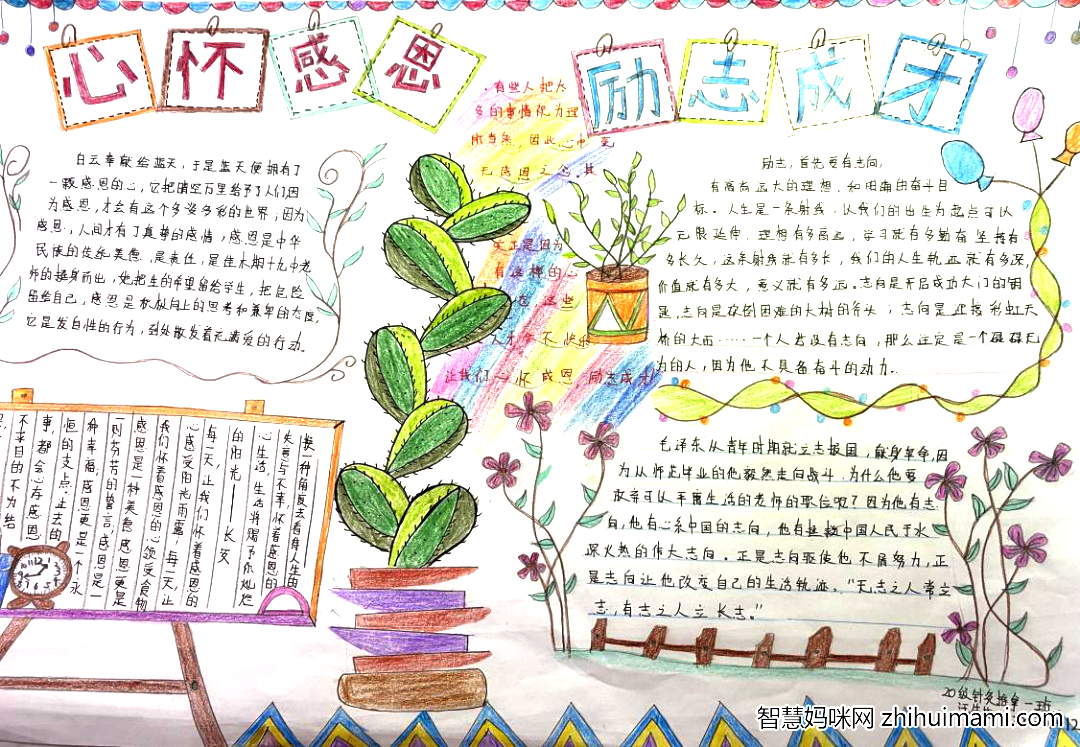 心怀感恩 励志成才
白云奉献给蓝天，于是蓝天便拥有了
一颗感恩的心，它把晴空万里给予了人们因
为感恩，才会有这个多姿多彩的世界；因为
感恩，人间才有了真挚的感情，感恩是中华
民族的传统美德，是责任，是佳木斯十九中老
师的挺身而出，她把生的希望留给学生，把危险
留给自己，感恩是积极向上的思考和谦卑的态度，
它是发自性的行为，到处散发着充满爱的行动。
有些人把太
多的事情化为理
所当然，因此心中
无感恩之念，其
实正是因为
有这样的心
态 这些
人才 不快乐
让我们心怀感恩，励志成才
励志，首先要有志向，
有高而远大的理想，和明确的奋斗目
标。人生是一条射线，以我们的出生为起点可以
无限延伸，理想有多高远，学习就有多勤奋 坚持有
多长久，这条射线就有多长，我们的人生轨迹就有多深
价值就有多大，意义就有多远。志向是开启成功大门的钥
匙，志向是砍倒困难的大树的斧头；志向是连接彩虹天
桥的大而……一个人若没有志向，那么注定是一个碌碌无
为的人，因为他不具备奋斗的动力。
换一种角度去看待人生的
失意与不幸，怀着感恩的
心生活，生活将赐予你灿烂
的阳光——长文
每一天，让我们怀着感恩的
心感受阳光雨露，每一天，让
我们怀着感恩的心领受食物
感恩是一种美德感恩更是
一则芬芳的誓言，感恩是一
种幸福，感恩更是一个永
恒的支点。过去的
事，都会心存感恩
不来日的不为结
毛泽东从青年时期就立志报国，献身革命，因
为从师范毕业的他毅然走向战斗。为什么他要
放弃可以平庸生活的老师的职位呢？因为他有志
向，他有心系中国的志向，他有拯救中国人民于水
深火热的伟大志向。正是志向驱使他不屑努力，正
是志向让他改变自己的生活轨迹。“无志之人常立
志，有志之人立长志。”
20级针灸推拿一班
智慧妈咪网 zhihuimami.com